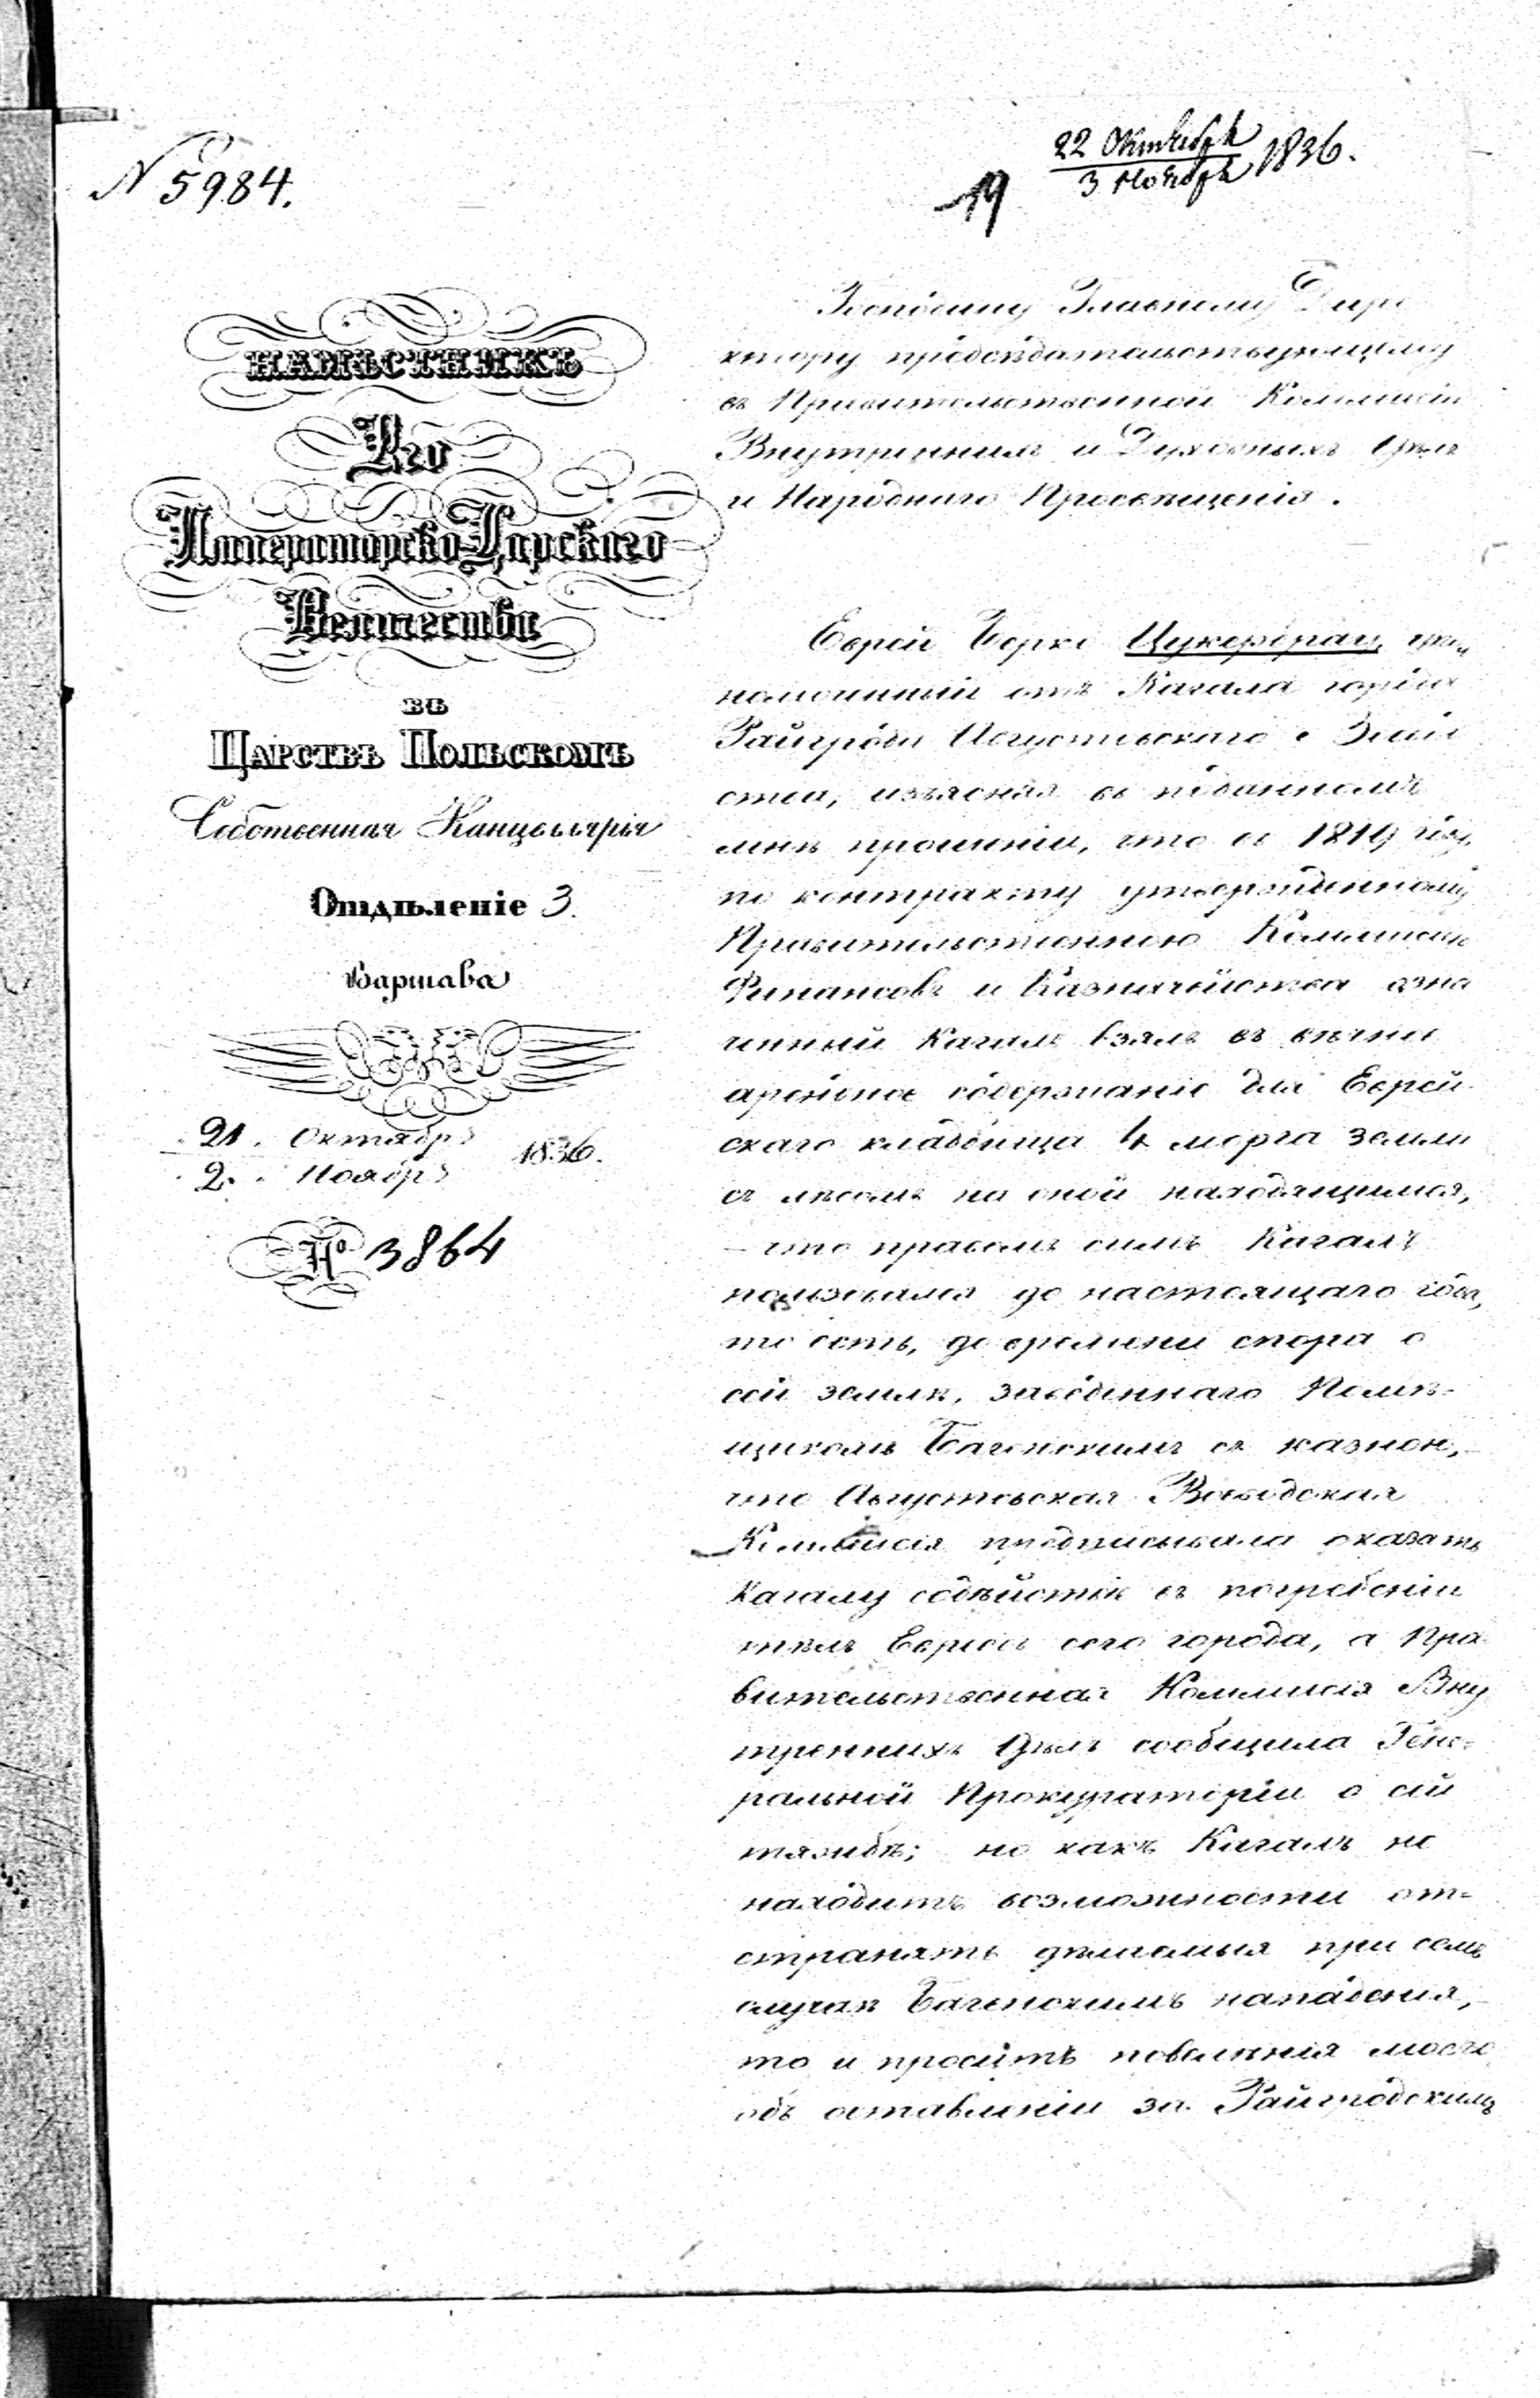 N 5984.
22 Октября
3 Ноября 1836.
19
НАМѢСТНИКЪ
Его
Императорско-Царскаго
Величества
въ
Царствѣ Польскомъ
Собственная Канцелярія
Отдѣленіе 3.
Варшава
21. Октября
2. Ноября 1836.
№ 3864
Господину Главному Дире
ктору предсѣдательствующему
въ Правительственной Коммисіи
Внутреннихъ и Духовныхъ Дѣлъ
и Народнаго Просвѣщенія.
Еврей Берко Цукербраи, упол
номоченный отъ Кагала города
Райгрода Августовскаго
ства, изъясняя въ поданномъ
мнѣ прошеніи, что въ 1819 году,
по контракту утвержденному
Правительственною Коммисіею
Финансовъ и Казначейства озна
ченный Кагалъ взялъ въ вѣчно
арендное содержаніе для Еврей
скаго кладбища 4 морга земли
съ лѣсомъ на оной находящимся,
– что правомъ симъ Кагалъ
пользовался до настоящаго года,
то есть, до времени спора о
сей землѣ, заведеннаго Помѣ-
щикомъ Багенскимъ съ казною,–
что Августовская Воеводская
Коммисія предписывала оказать
Кагалу содѣйствіе въ погребеніи
тѣлъ Евреевъ сего города, а Пра
вительственная Коммисія Вну
треннихъ Дѣлъ сообщила Гене-
ральной Прокураторіи о сей
тяжбѣ; но какъ Кагалъ не
находитъ возможности от-
странять дѣлаемыя при семъ
случаѣ Багенскимъ нападенія,–
то и проситъ повелѣнія моего
объ оставленіи за Райгродскимъ